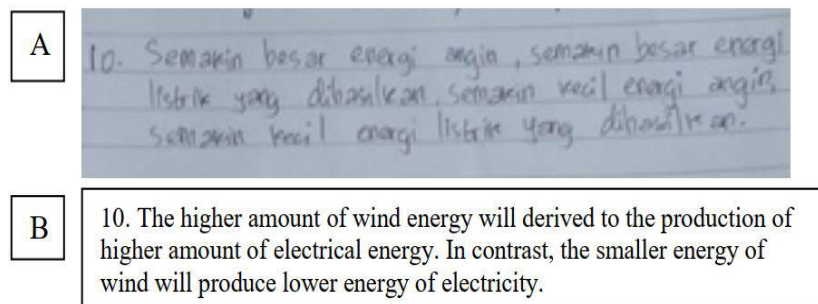 A
10. Semakin besar energi angin, semakin besar energi
listrik yang dihasilkan, semakin kecil energi angin,
semakin kecil energi listrik yang dihasilkan.
B
10. The higher amount of wind energy will derived to the production of
higher amount of electrical energy. In contrast, the smaller energy of
wind will produce lower energy of electricity.